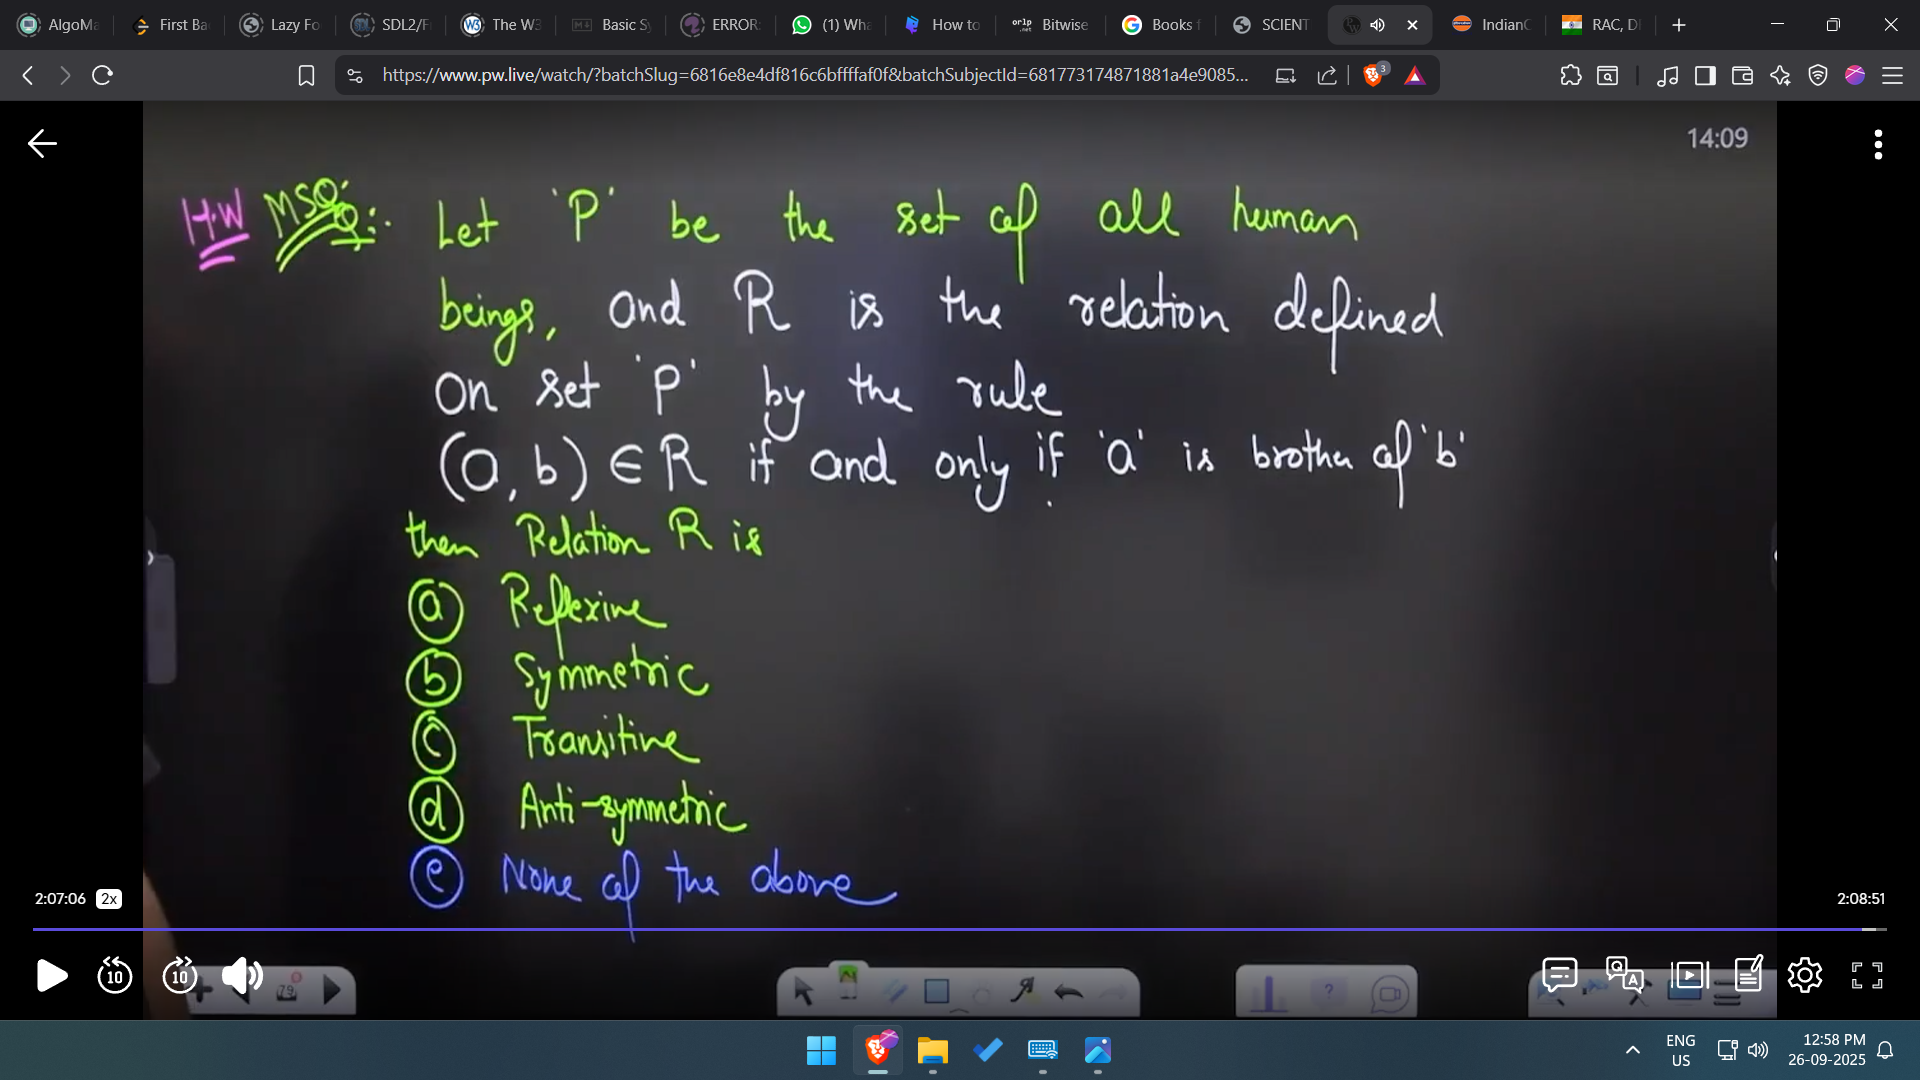 AlgoMa
First Ba
Lazy Fo
SDL2/F
The W3
Basic Sy
ERROR:
(1) Wha
How to
Bitwise
Books f
SCIENT
IndianO
RAC, D
https://www.pw.live/watch/?batchSlug=6816e8e4df816c6bffffaf0f&batchSubjectId=681773174871881a4e9085...
3
14:09
H.W MSQ Q:. Let 'P' be the set of all human
beings, and R is the relation defined
on set 'P' by the rule
(a, b) ∈ R if and only if 'a' is brother of 'b'
then Relation R is
a Reflexive
b Symmetric
c Transitive
d Anti-symmetric
e None of the above
2:07:06 2x
2:08:51
10
10
79
ENG
US
12:58 PM
26-09-2025